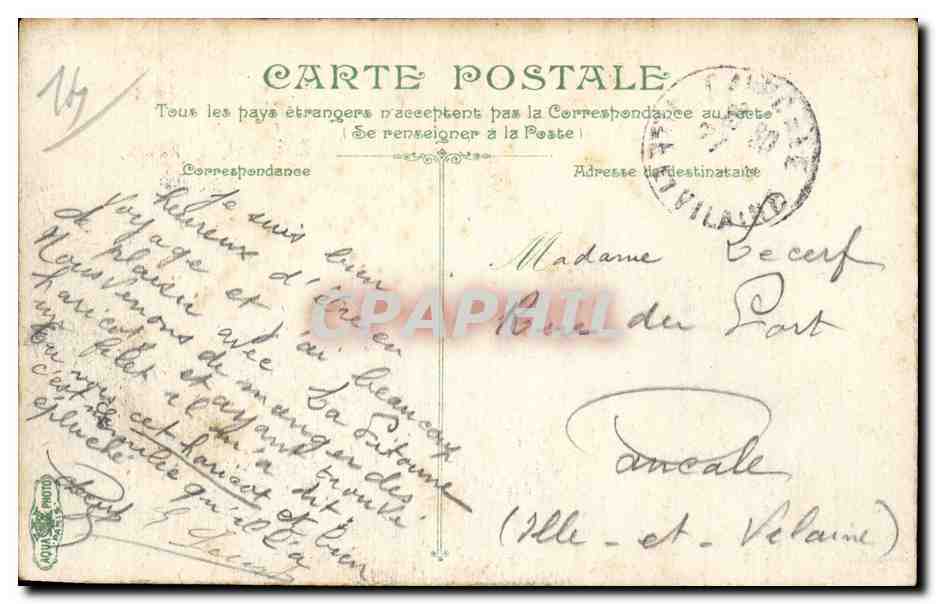 CARTE POSTALE
Tous les pays étrangers n'acceptent pas la Correspondance au recto
(Se renseigner à la Poste)
Correspondance
Adresse du destinataire
Je suis bien
heureux d'être en
voyage et j'ai beaucoup
de plaisir avec La Pitoune
Nous venons de manger des
haricots et ayant trouvé
un filet il m'a dit:
ou vous cet haricot et bien
c'est qu'il l'a
épluché.
Madame Lecerf
Rue du Port
Cancale
(Ille-et-Vilaine)
CPAPHIL
AQUA PHOTO
PARIS
VILAINE